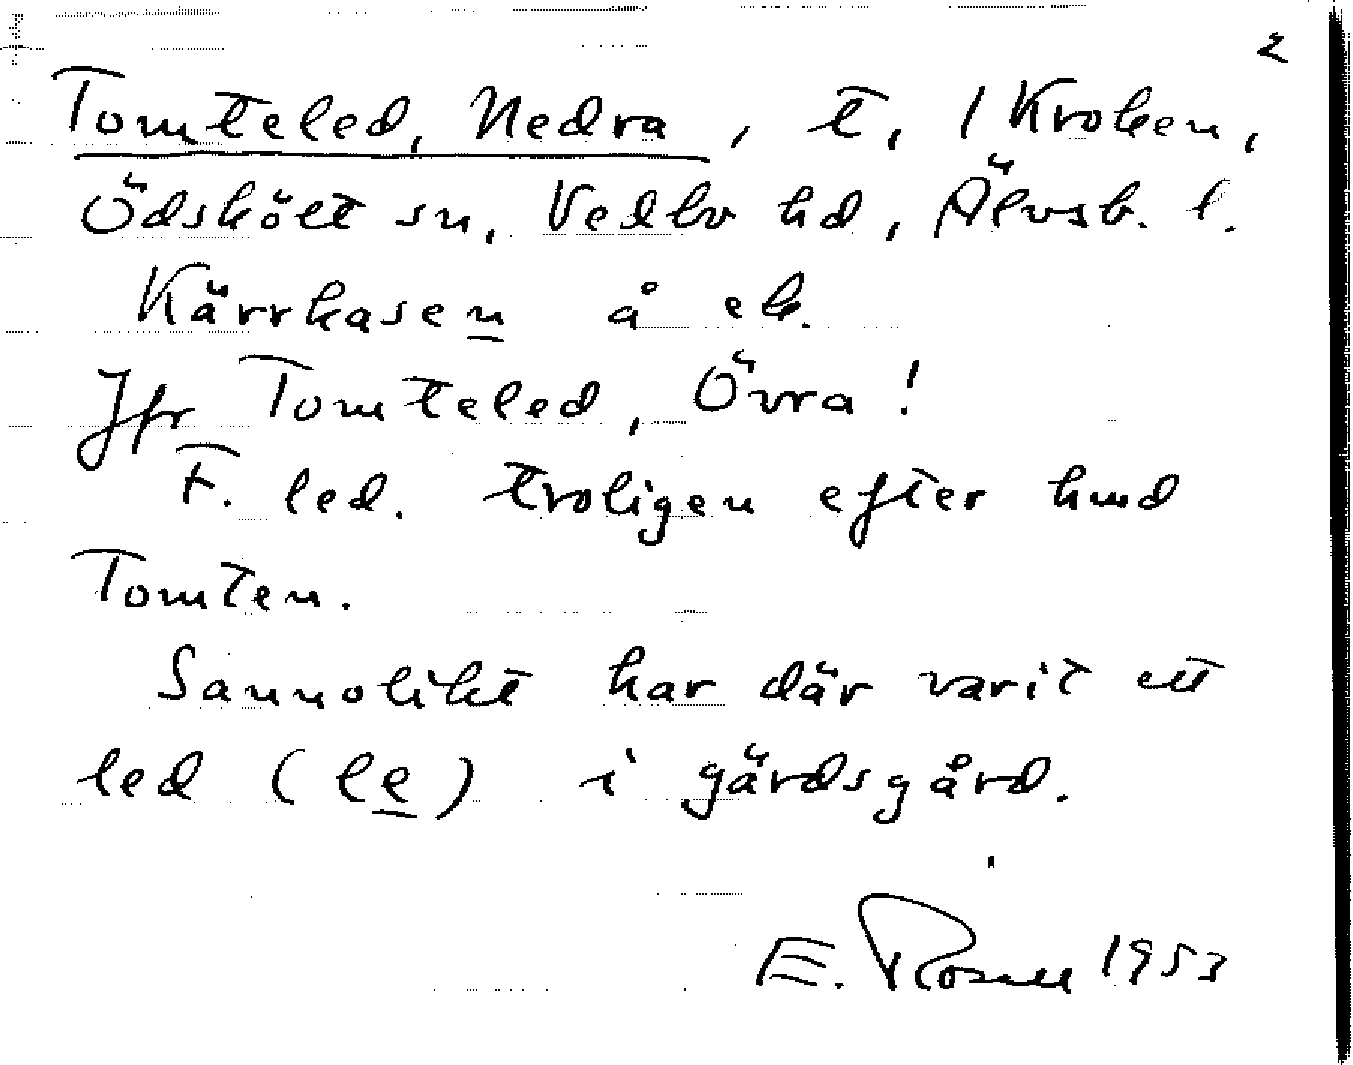 2
Tomteled, Nedra, t, 1 Kroken,
Ödskölt sn, Vedbo hd, Älvsb. l.
Kärrkasen å ek.
Jfr Tomteled, Övra!
F. led. troligen efter hmd
Tomten.
Sannolikt har där varit ett
led (le) i gärdsgård.
E. Rosell 1953